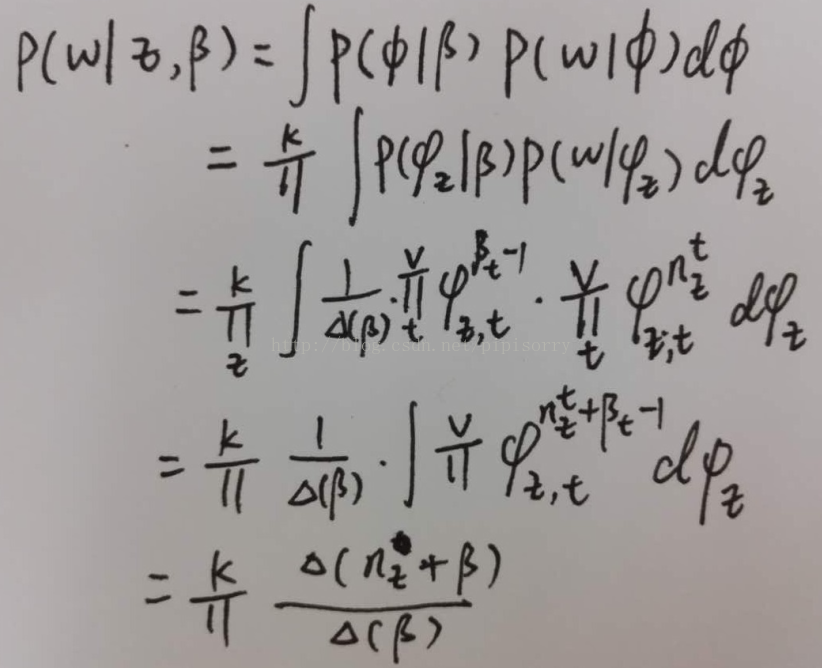 P(w|z,β) = ∫ p(φ|β) p(w|φ) dφ
= ∏^K ∫ p(φ_z|β) p(w|φ_z) dφ_z
= ∏_z^K ∫ 1/Δ(β) · ∏_t^V φ_{z,t}^{β_t-1} · ∏_t^V φ_{z,t}^{n_z^t} dφ_z
http://blog.csdn.net/pipisorry
= ∏^K 1/Δ(β) · ∫ ∏^V φ_{z,t}^{n_z^t+β_t-1} dφ_z
= ∏^K Δ(n_z+β)/Δ(β)